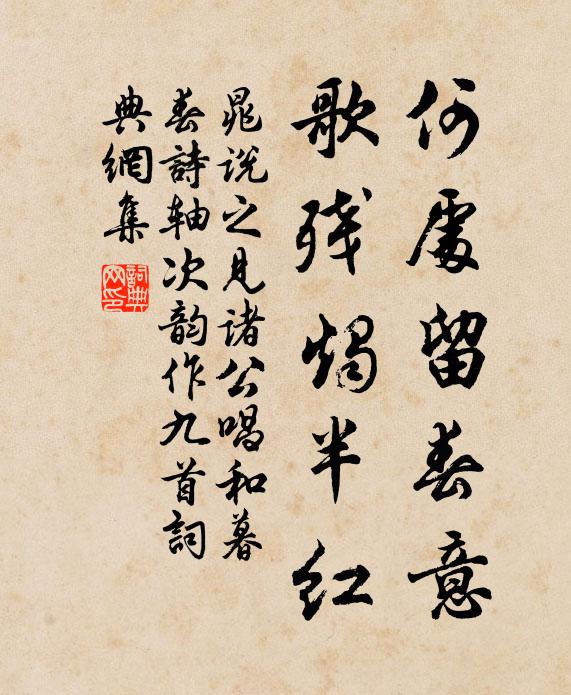 何處留春意
歌殘燭半紅
晁說之見諸公唱和暮
春詩軸次韵作九首詞
典網集
詞典網印